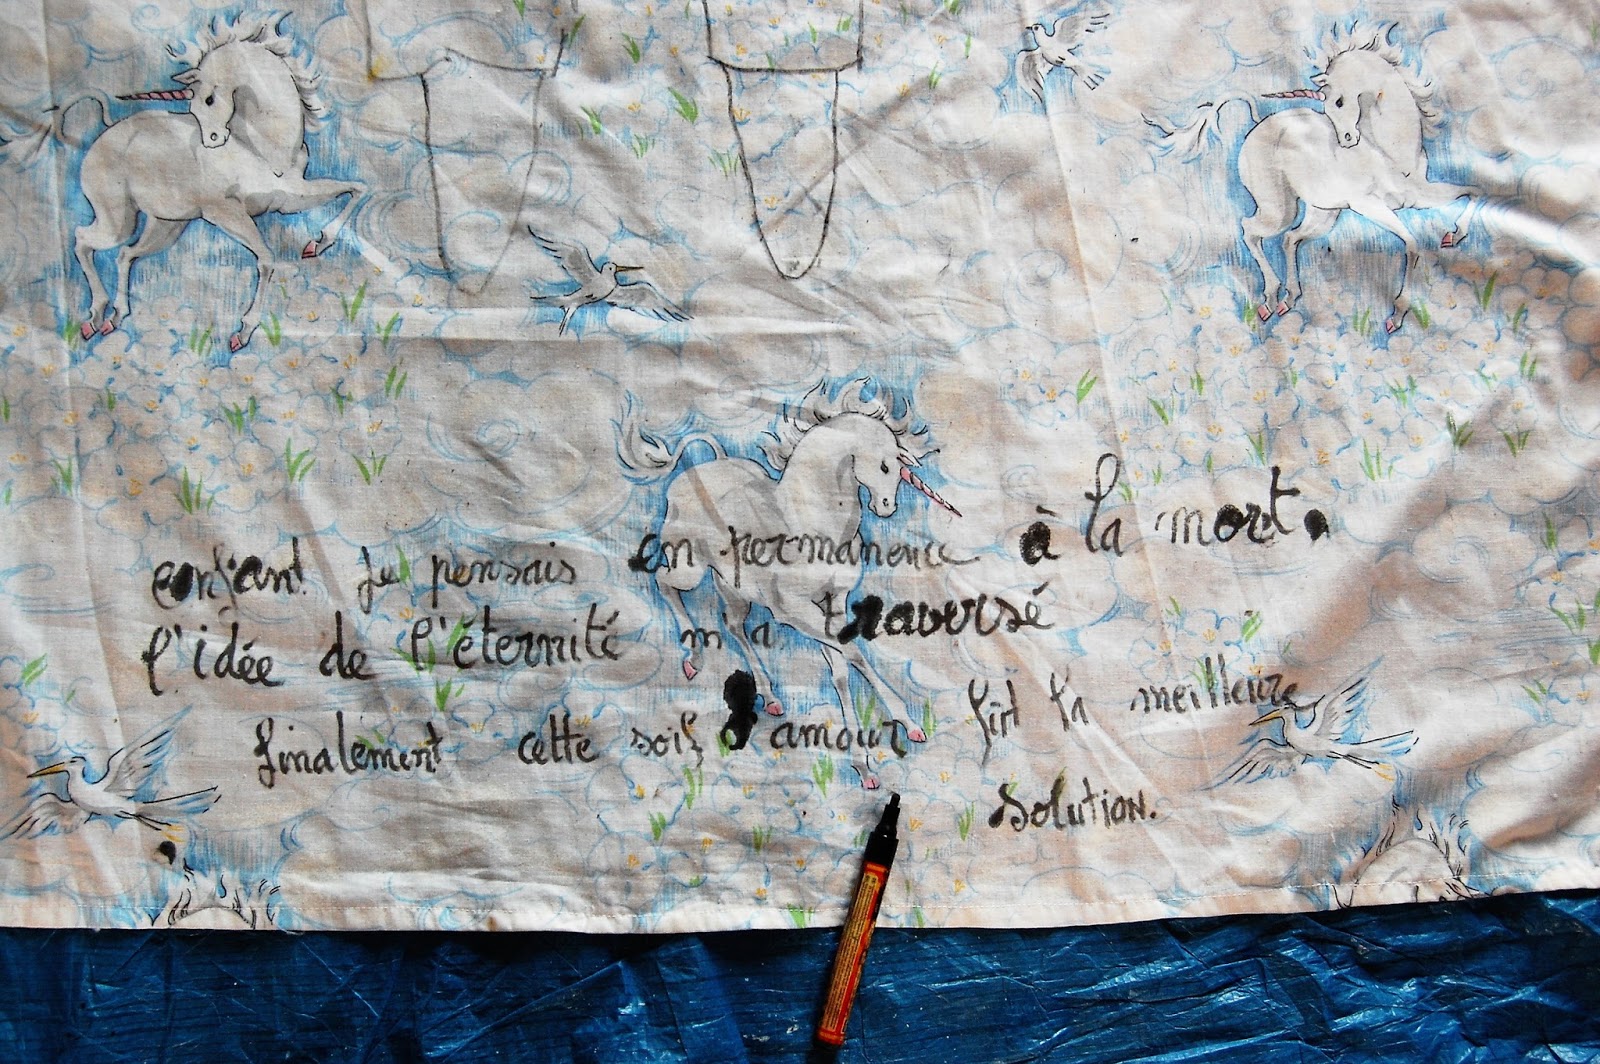 enfant je pensais en permanence à la mort.
l'idée de l'éternité m'a traversé
finalement cette soif d'amour fût la meilleure
solution.